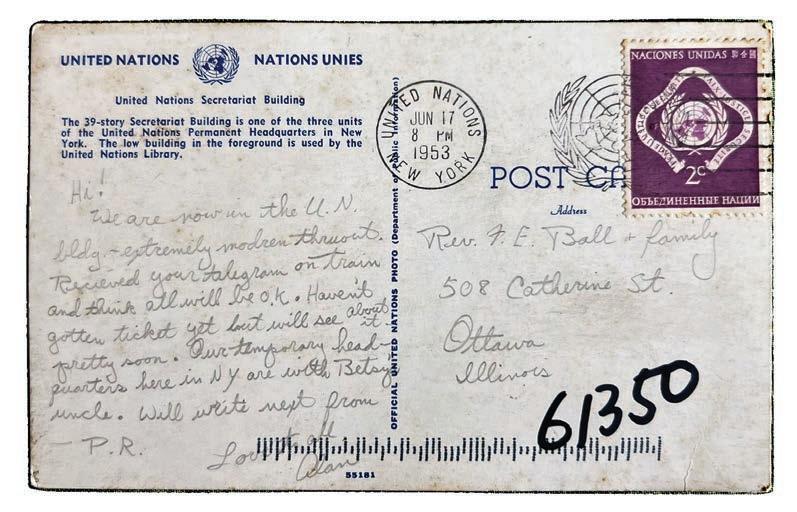 UNITED NATIONS NATIONS UNIES
United Nations Secretariat Building
The 39-story Secretariat Building is one of the three units
of the United Nations Permanent Headquarters in New
York. The low building in the foreground is used by the
United Nations Library.
Hi!
We are now in the U.N.
bldg. - extremely modren thruout.
Recieved your telegram on train
and think all will be O.K. Haven't
gotten ticket yet but will see about
it
pretty soon. Our temporary head-
quarters here in NY are with Betsy's
uncle. Will write next from
- P.R.
Love to all,
Alan
55181
OFFICIAL UNITED NATIONS PHOTO (Department of Public Information)
UNITED NATIONS
JUN 17
8 PM
1953
NEW YORK
POST CA
Address
NACIONES UNIDAS
2c
ОБЪЕДИНЕННЫЕ НАЦИИ
Rev. F. E. Ball + family
508 Catherine St.
Ottawa
Illinois
61350